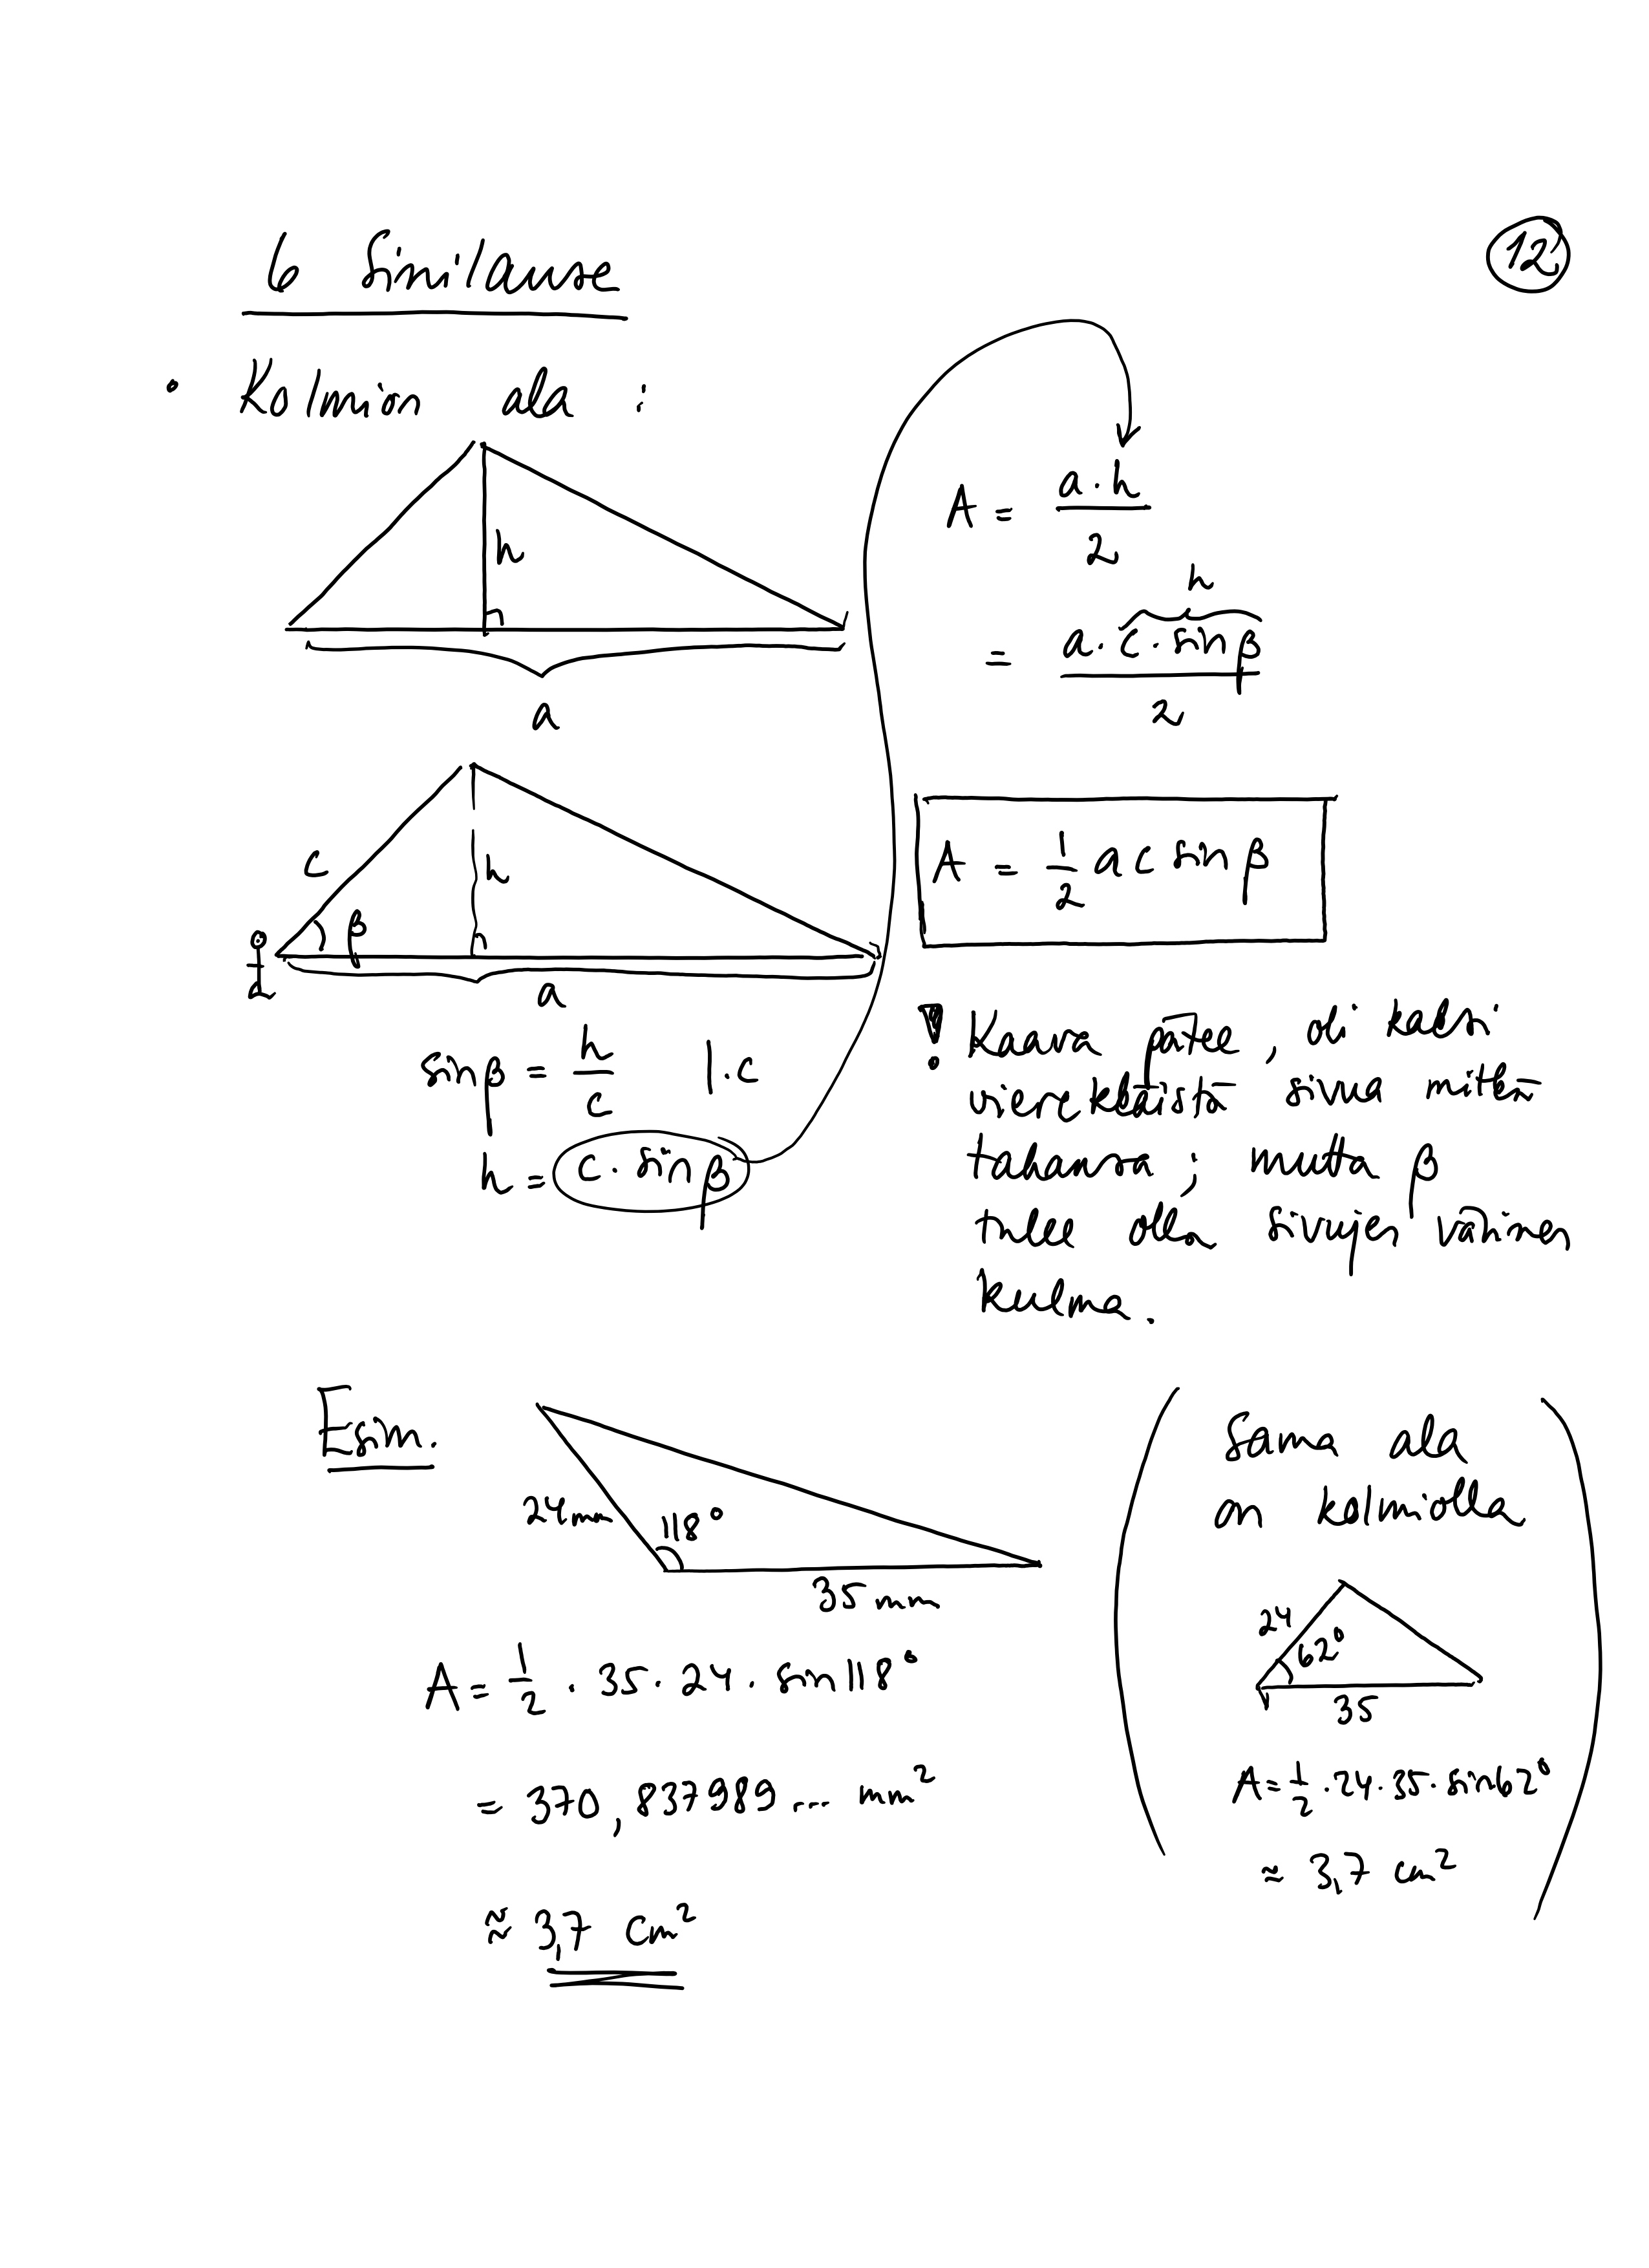 6 Sinilause
12
• Kolmion ala :
h
a
A = a·h / 2
h
= a·c·sin β / 2
c
h
β
a
A = 1/2 a c sin β
sin β = h/c |·c
h = c·sin β
! Kaava pätee, oli kaksi
vierekkäistä sivua mitkä
tahansa; mutta β
tulee olla sivujen välinen
kulma.
Esim.
24mm
118°
35 mm
A = 1/2 · 35 · 24 · sin 118°
= 370,837989... mm²
≈ 3,7 cm²
Sama ala
on kolmiolla
24
62°
35
A = 1/2 · 24 · 35 · sin 62°
≈ 3,7 cm²